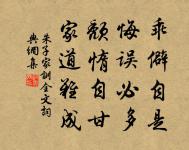 乖僻自是
悔误必多
颓惰自甘
家道难成
朱子家训全文词
典網集